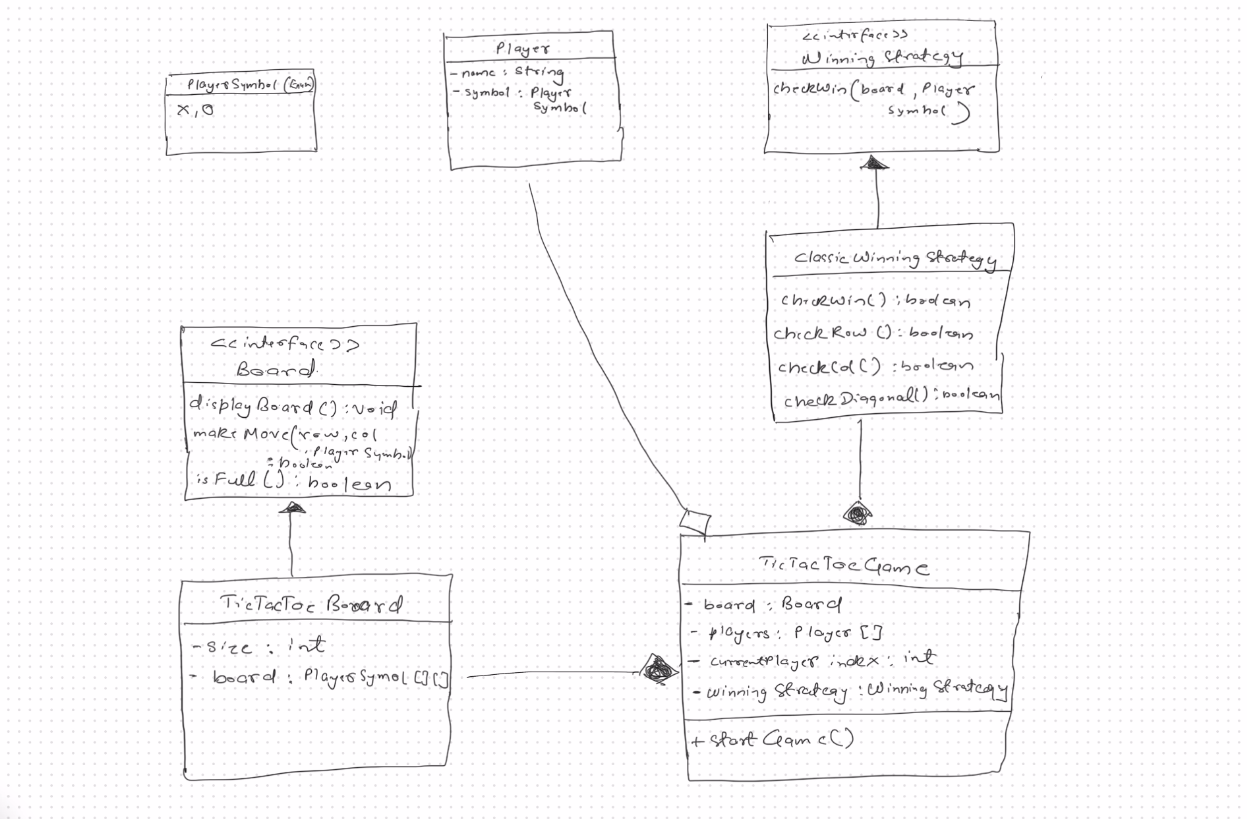 PlayerSymbol (Enum)
X, O
Player
- name : String
- symbol : Player
Symbol
<<interface>>
Winning Strategy
checkWin(board, Player
symbol)
Classic Winning Strategy
checkWin() : boolean
checkRow () : boolean
checkCol () : boolean
checkDiagonal() : boolean
<<interface>>
Board
displayBoard() : void
makeMove(row, col
, Player Symbol)
: boolean
isFull () : boolean
TicTacToe Board
- size : int
- board : PlayerSymol [][]
TicTacToe Game
- board : Board
- players : Player []
- currentPlayer index : int
- winning Strategy : Winning Strategy
+ start Game()